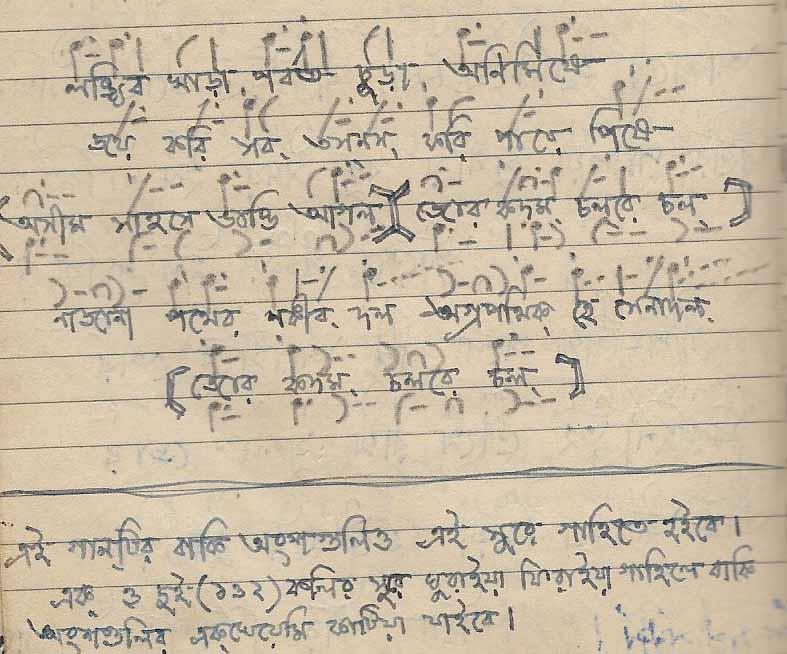 লঙ্ঘিব খাড়া পর্বত চূড়া, অনিমিষে
জয় করি সব, তসনস, করি পায়ে পিষে
(অসীম সাহসে ভাঙ্গি আগল) [জোর কদম চলরে চল]
নাজানা পথের নকীব দল অগ্রপথিক হে সেনাদল
[জোর কদম চলরে চল]
এই গানটির বাকি অংশগুলিও এই সুরে গাহিতে হইবে।
এক ও দুই (১ও২) কলির সুর ঘুরাইয়া ফিরাইয়া গাহিলে বাকি
অংশগুলির একঘেয়েমি কাটিয়া যাইবে।